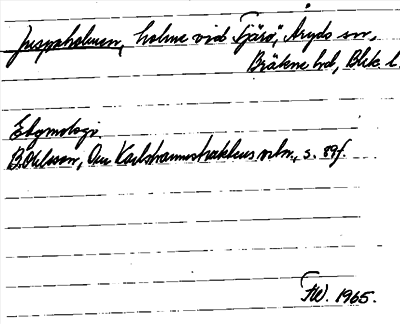 Jespsholmen, holme vid Tjärö, Åryds sn,
Bräkne hd, Blek. l.
Etymologi.
B. Ohlsson, Om Karlshamnstraktens nbn., s. 89f.
FW. 1965.